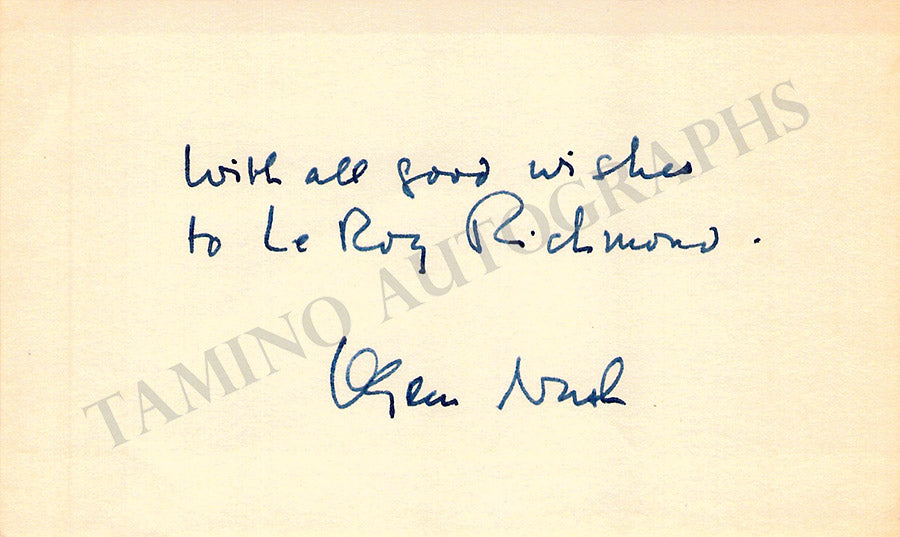 With all good wishes
to Le Roy Richmond.
Ogden Nash
TAMINO AUTOGRAPHS